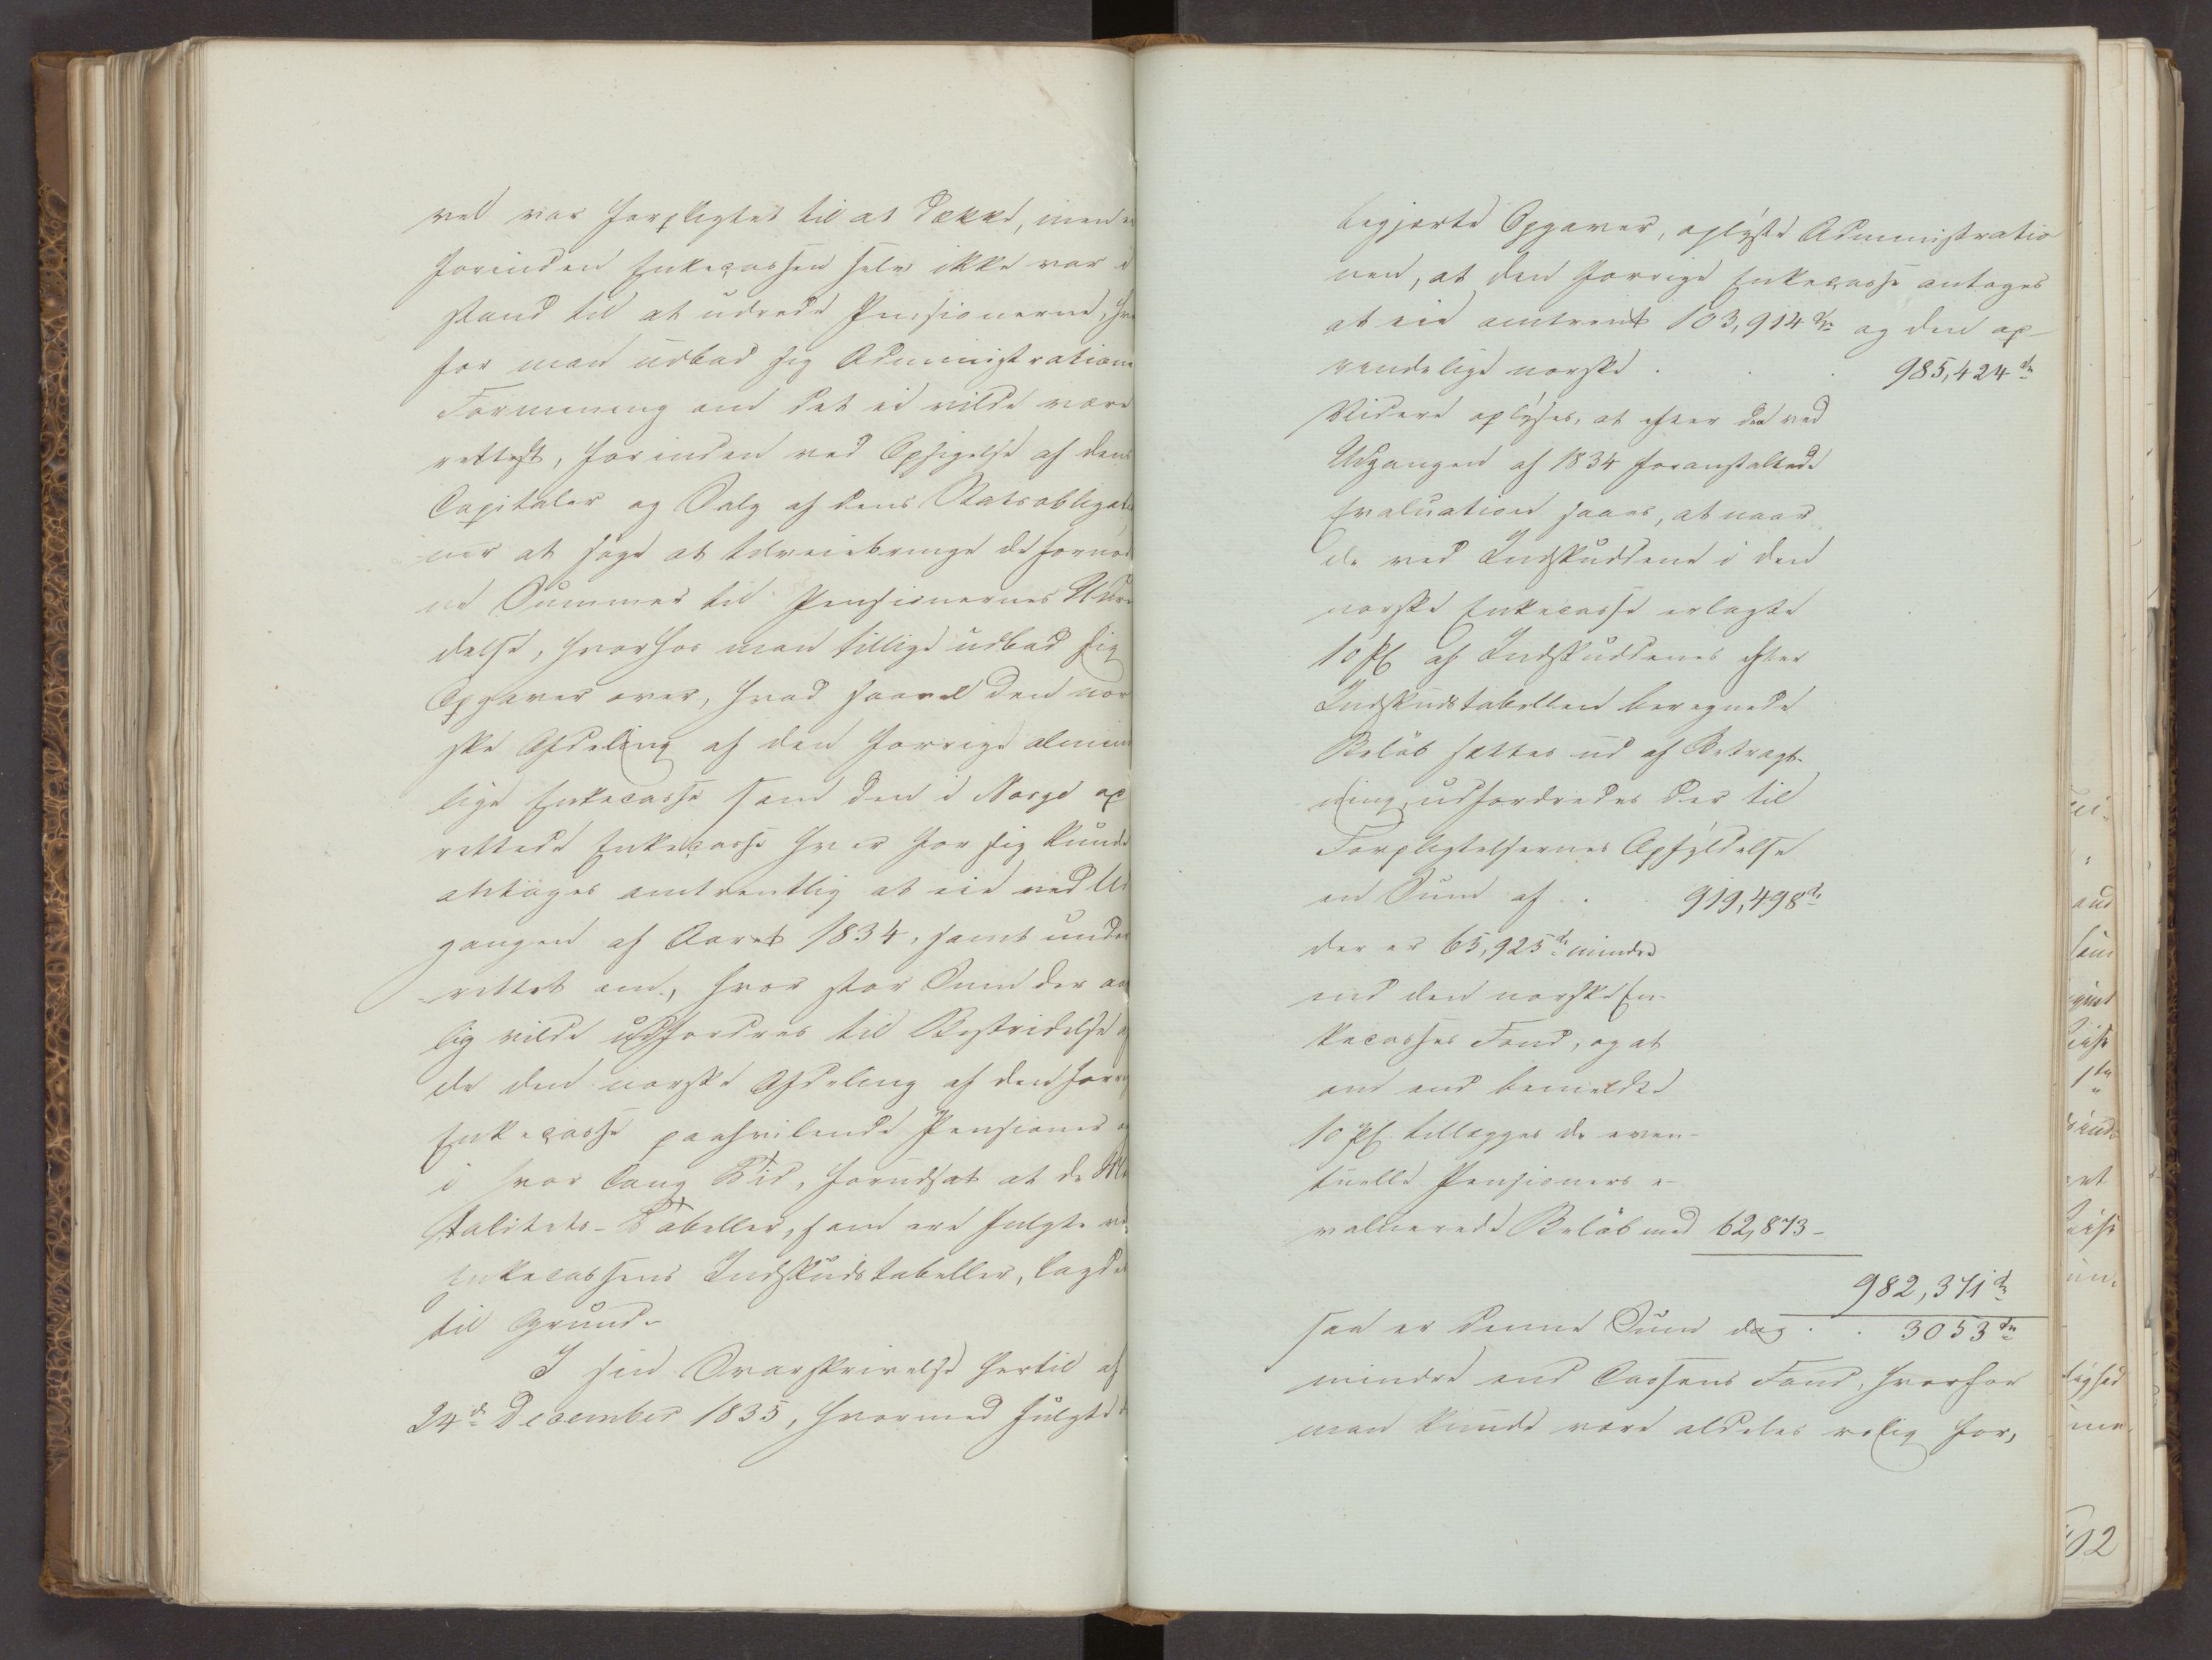 vel var forpligtet til at dække, men
forinden Enkecassen selv ikke var i
stand til at udrede Pensionerne, hvor
for man udbad sig Administrationens
Formening om det ei vilde være
rettest, forinden ved Opsigelse af dens
Capitaler og Salg af dens Statsobligatio
ner at søge at tilveiebringe de fornød
ne Summer til Pensionernes Udre
delse, hvorhos man tillige udbad sig
Opgaver over, hvad saavel den nor
ske Afdeling af den forrige almin
lige Enkecasse som den i Norge op
rettede Enkecasse hver for sig kunde
antages omtrentlig at eie ved Ud
gangen af Aaret 1834, samt under
rettet om, hvor stor Sum der aar
lig vilde udfordres til Bestridelse af
de den norske Afdeling af den forrige
Enkecasse paahvilende Pensioner og
i hvor lang Tid, forudsat at de Mor
talitets-Tabeller, som ere fulgte ved
Enkecassens Indskudstabeller, lagdes
til Grund.
I sin Svarskrivelse hertil af
24de December 1835, hvormed fulgte de
begjærte Opgaver, oplyste Administratio
nen, at den forrige Enkecasse antages
at eie omtrent 103,914 Spd og den op
rindelige norske . . . 985,424 Spd
Videre oplyses, at efter den ved
Udgangen af 1834 foranstaltede
Evaluation haves, at naar
de ved Indskuddene i den
norske Enkecasse erlagte
10 pC af Indskuddenes efter
Indskudstabellen beregnede
Beløb sættes ud af Betragt-
ning, udfordredes der til
Forpligtelsernes Opfyldelse
en Sum af . . 919,498 Spd
der er 65,925 Spd mindre
end den norske En-
kecasses Fond, og at
om end bemeldte
10 pC tillægges de even-
tuelle Pensioners e-
valuerede Beløb med 62,873 -
982,371 Spd
saa er denne Sum dog . . 3053 Spd
mindre end Cassens Fond, hvorfor
man kunde være aldeles rolig for,